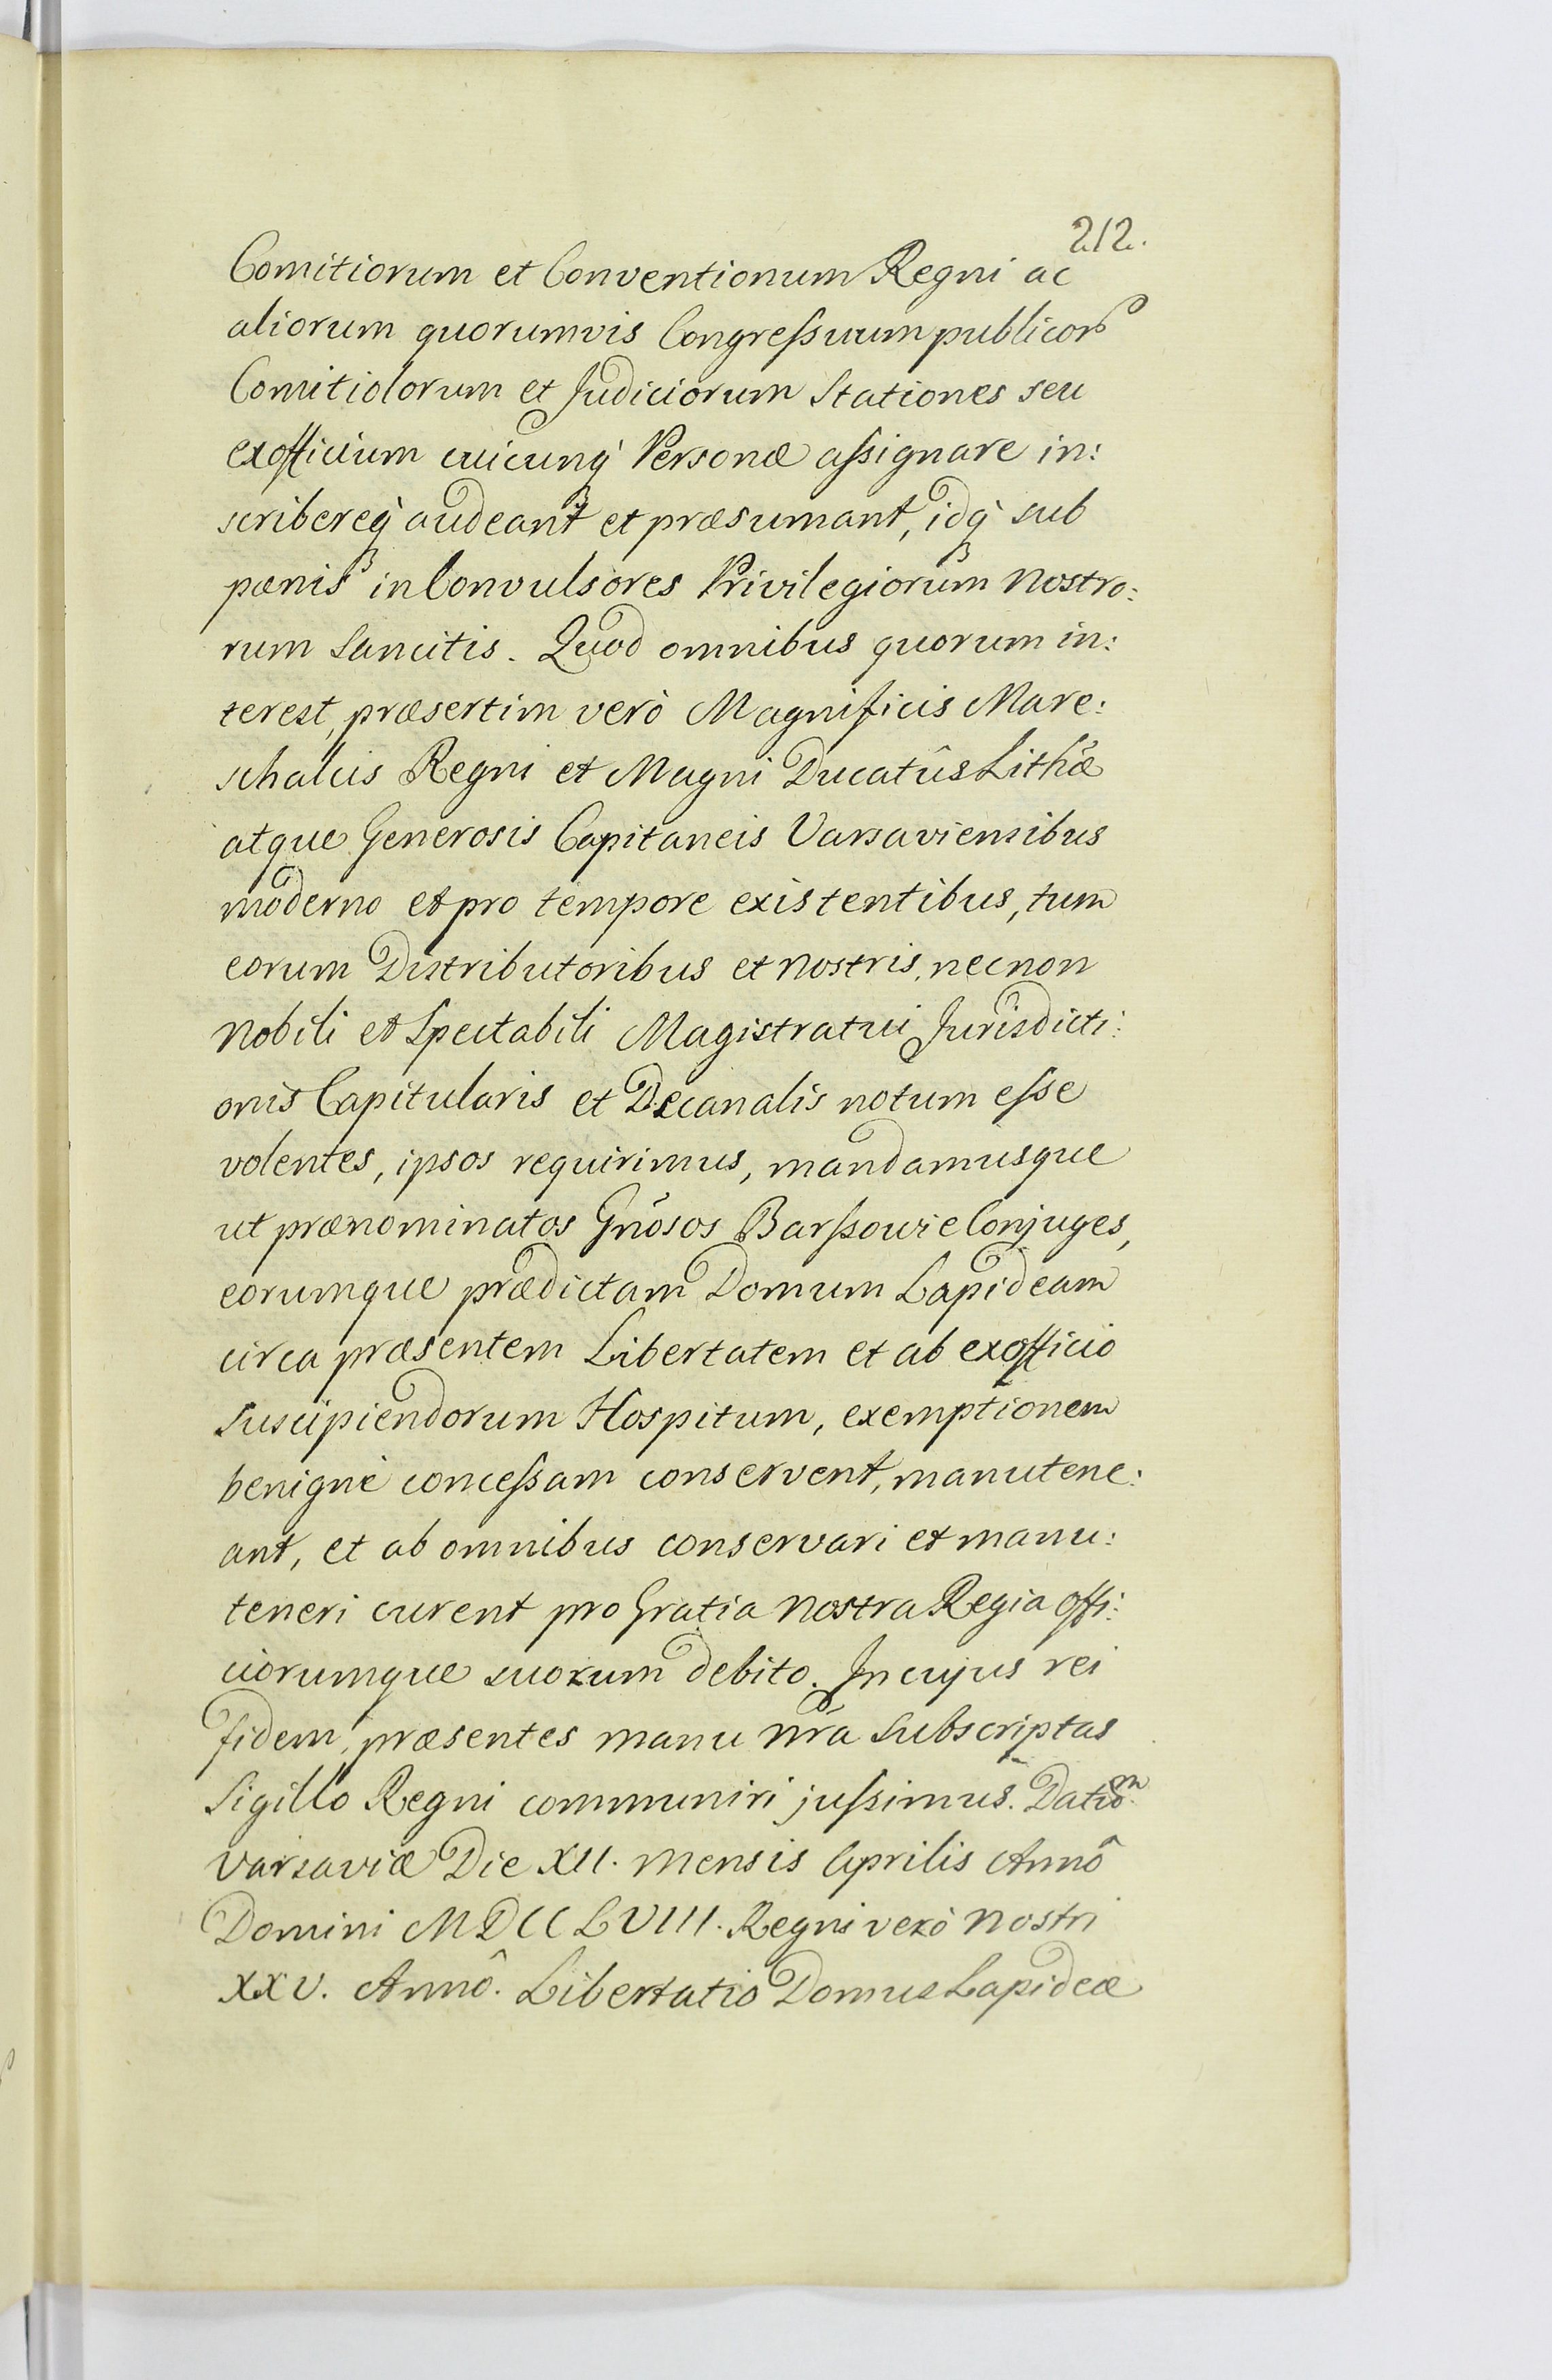 212.
Comitiorum et Conventionum Regni ac
aliorum quorumvis Congreſsuum publicor
Comitiolorum et Judiciorum Stationes seu
exofficium cuicunq́ Personæ aſsignare in:
scribereq́ audeant et præsumant, idq́ sub
pænis in Convulsores Privilegiorum Nostro:
rum Sancitis. Quod omnibus quorum in:
terest, præsertim verò Magnificis Mare:
schalcis Regni et Magni Ducatûs Lithæ
atque Generosis Capitaneis Varsaviensibus
moderno et pro tempore existentibus, tum
eorum Distributoribus et Nostris, necnon
Nobili et Spectabili Magistratui Jurisdicti:
onis Capitularis et Decanalis notum eſse
volentes, ipsos requirimus, mandamusque
ut prænominatos Gnõsos Barſsowie Conjuges,
eorumque prædictam Domum Lapideam
circa præsentem Libertatem et ab exofficio
Suscipiendorum Hospitum, exemptionem
benignè conceſsam conservent, manutene:
ant, et ab omnibus conservari et manu:
teneri curent pro Gratia Nostra Regia offi:
ciorumque suorum debito. In cujus rei
fidem, præsentes manu Nrã Subscriptas
Sigillo Regni communiri juſsimus. Datũm
Varsaviæ Die XII. Mensis Aprilis Annô
Domini MDCCLVIII. Regni verò Nostri
XXV. Annô. Libertatio Domus Lapideæ